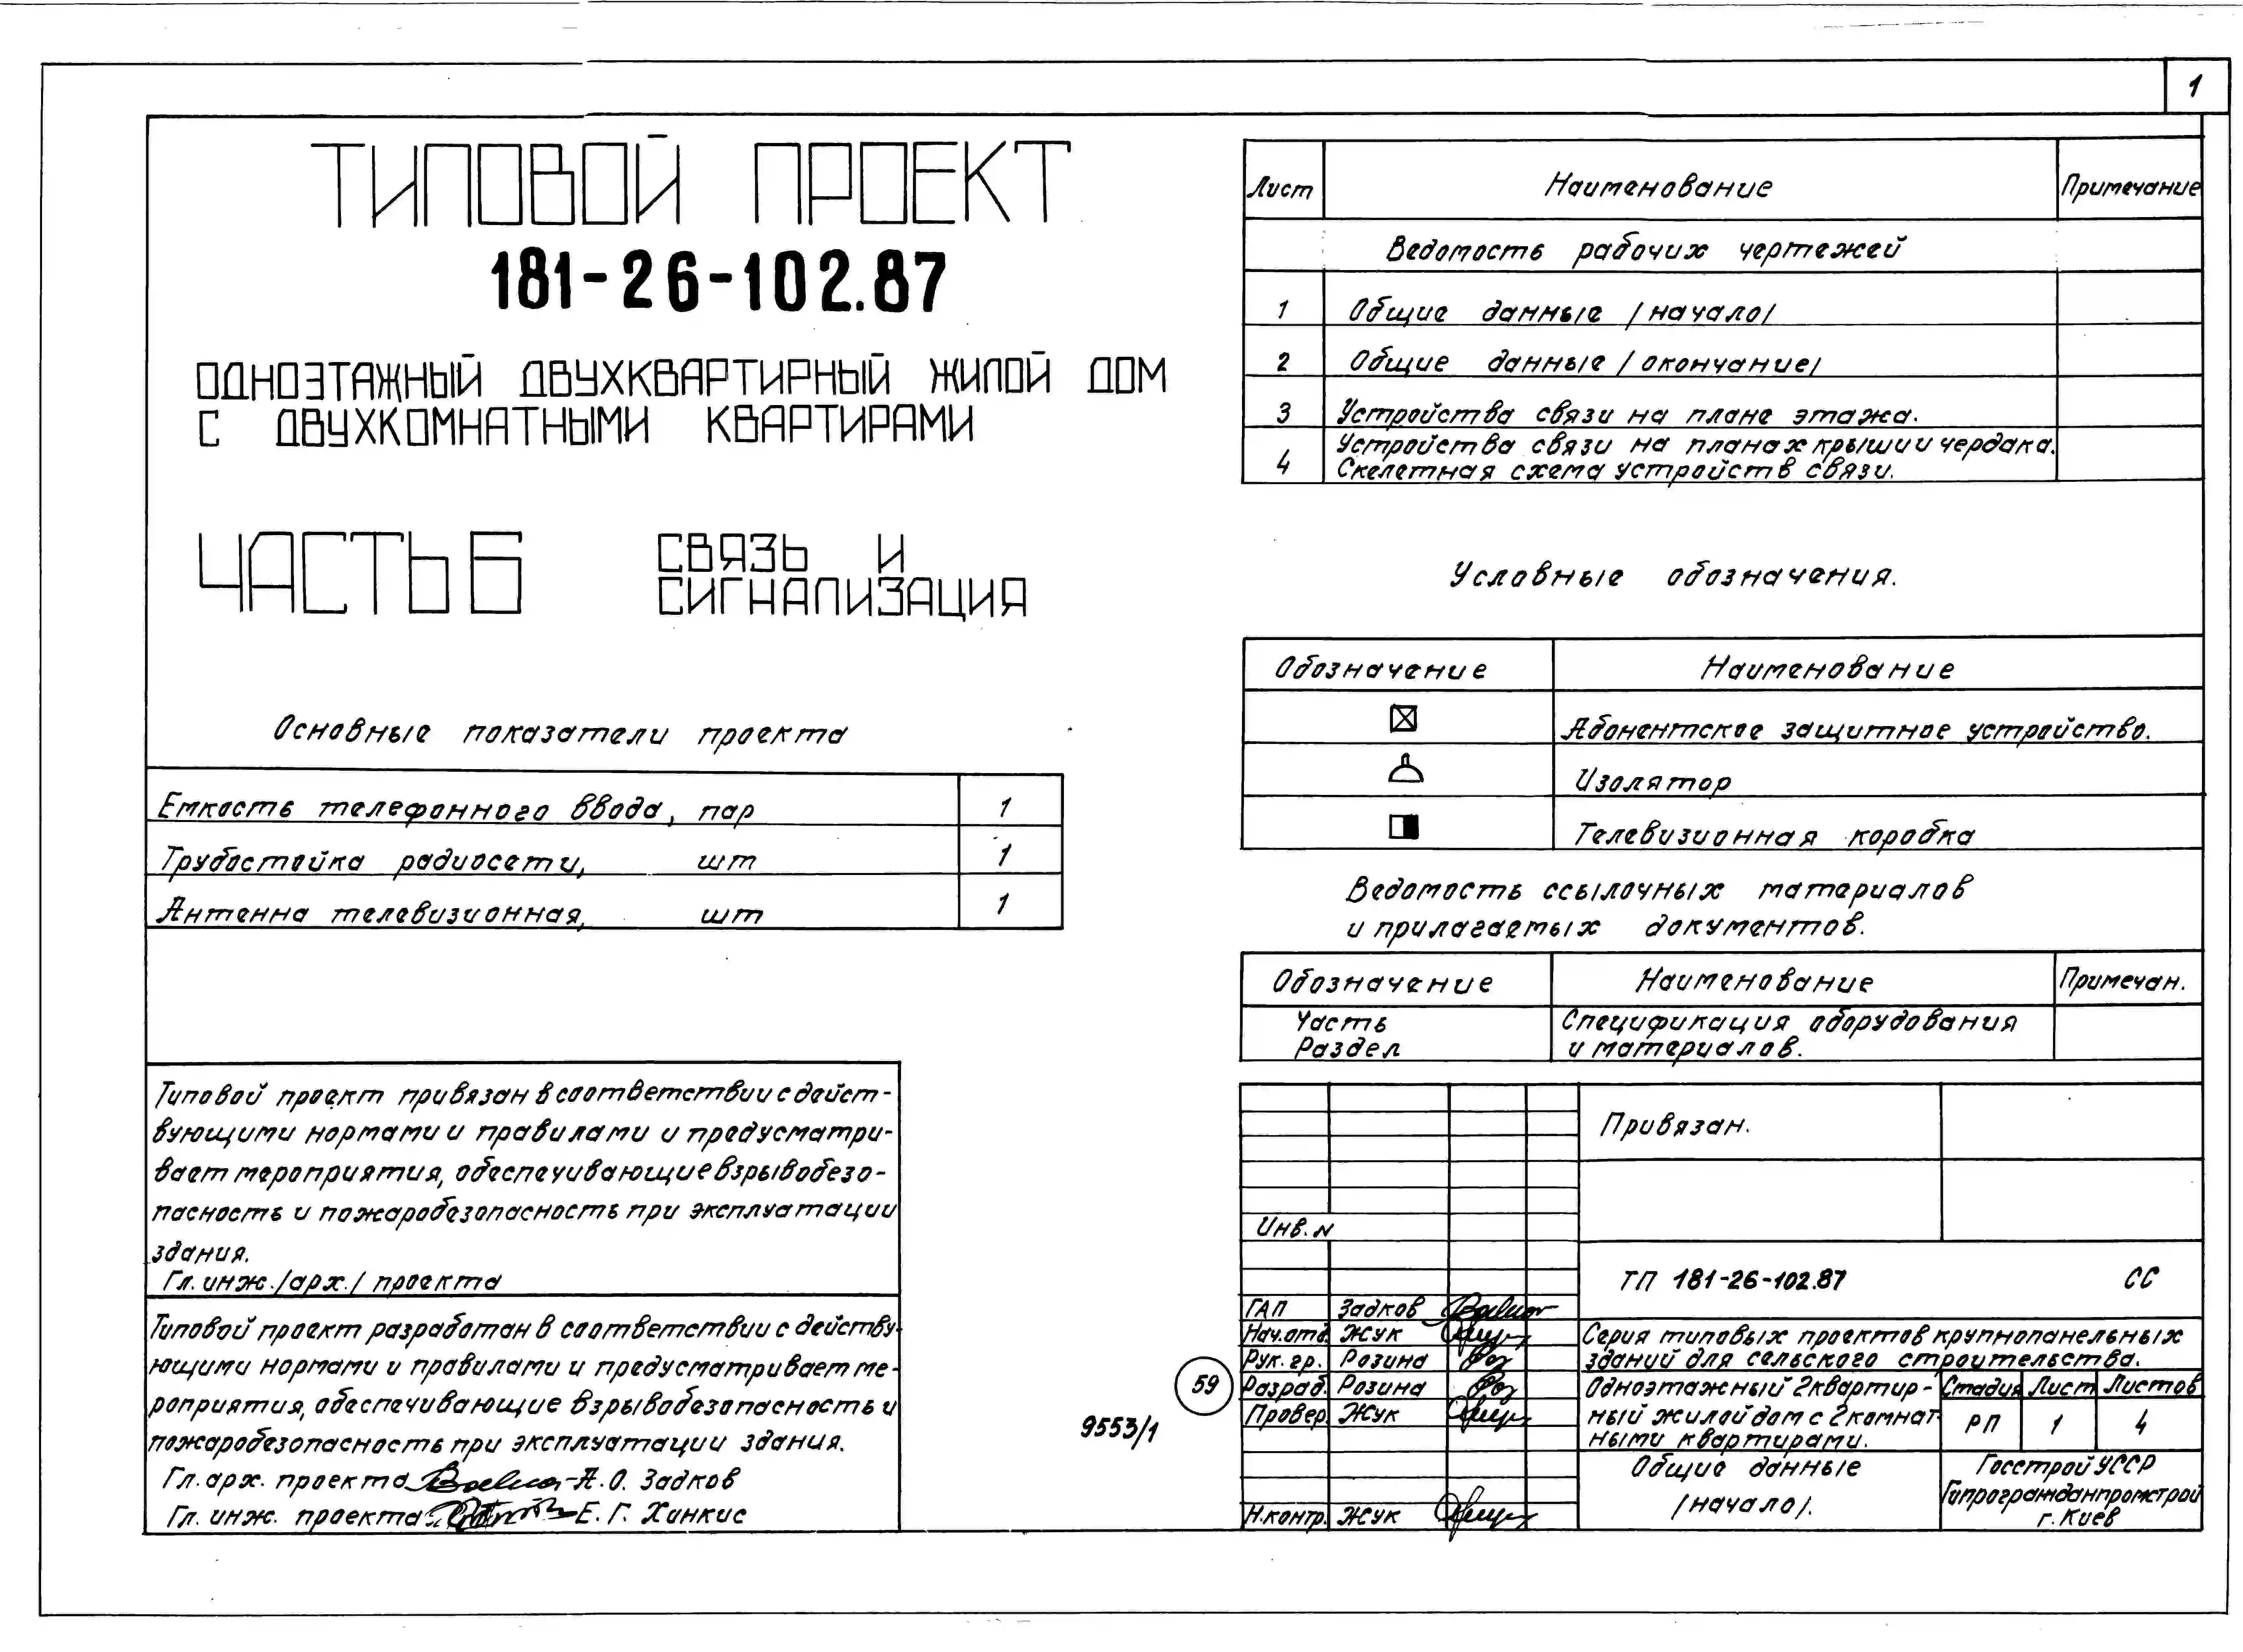 1
ТИПОВОЙ ПРОЕКТ
181-26-102.87
ОДНОЭТАЖНЫЙ ДВУХКВАРТИРНЫЙ ЖИЛОЙ ДОМ
С ДВУХКОМНАТНЫМИ КВАРТИРАМИ
ЧАСТЬ 6
СВЯЗЬ И
СИГНАЛИЗАЦИЯ
Основные показатели проекта
Емкость телефонного ввода, пар 1
Трубостойка радиосети, шт 1
Антенна телевизионная, шт 1
Типовой проект привязан в соответствии с дейст-
вующими нормами и правилами и предусматри-
вает мероприятия, обеспечивающие взрывобезо-
пасность и пожаробезопасность при эксплуатации
здания.
Гл. инж. /арх./ проекта
Типовой проект разработан в соответствии с действу-
ющими нормами и правилами и предусматривает ме-
роприятия, обеспечивающие взрывобезопасность и
пожаробезопасность при эксплуатации здания.
Гл. арх. проекта А. О. Задков
Гл. инж. проекта Е. Г. Ханкис
Лист Наименование Примечание
Ведомость рабочих чертежей
1 Общие данные /начало/
2 Общие данные /окончание/
3 Устройства связи на плане этажа.
4 Устройства связи на планах крыши и чердака.
Скелетная схема устройств связи.
Условные обозначения.
Обозначение Наименование
Абонентское защитное устройство.
Изолятор
Телевизионная коробка
Ведомость ссылочных материалов
и прилагаемых документов.
Обозначение Наименование Примечан.
Часть Спецификация оборудования
Раздел и материалов.
Привязан.
Инв. N
ТП 181-26-102.87 СС
ГАП Задков
Нач.отд. Жук
Рук. гр. Розина
Разраб. Розина
Провер. Жук
Н.контр. Жук
Серия типовых проектов крупнопанельных
зданий для сельского строительства.
Одноэтажный 2квартир-
ный жилой дом с 2комнат-
ными квартирами.
Стадия Лист Листов
РП 1 4
Общие данные
/начало/.
Госстрой УССР
Гипрогражданпромстрой
г. Киев
59
9553/1